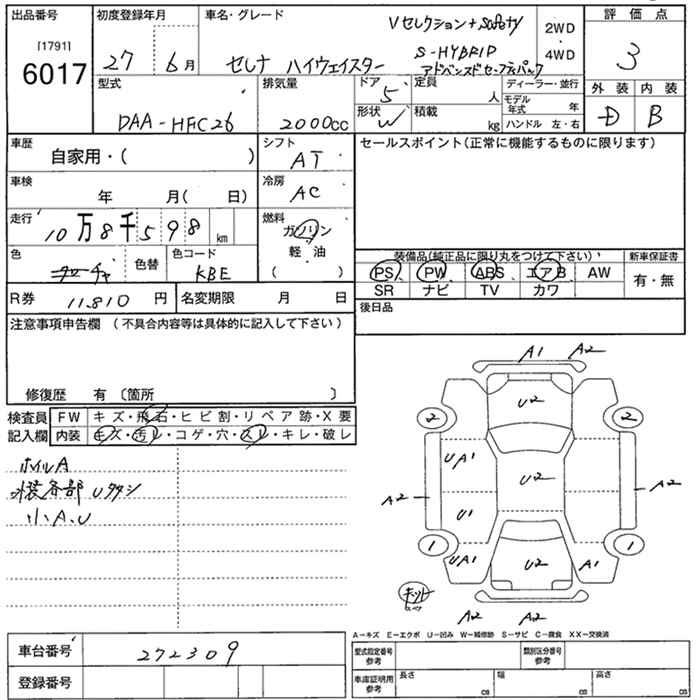 出品番号 初度登録年月 車名・グレード 評価点
[1791]
6017
27 6月
セレナ ハイウェイスター
Vセレクション+Safety
S-HYBRID
アドバンスドセーフティパック
2WD
・
4WD
3
型式
DAA-HFC26
排気量
2000cc
ドア 5
形状 W
定員 人
積載 kg
ディーラー・並行
モデル年式 年
ハンドル 左・右
外装 内装
D B
車歴
自家用・( )
シフト
AT
セールスポイント(正常に機能するものに限ります)
車検
年 月( 日)
冷房
AC
走行
10万8千598 km
燃料
ガソリン
軽・油
( )
色
色替
色コード
KBE
装備品(純正品に限り丸をつけて下さい) 新車保証書
PS PW ABS エアB AW
SR ナビ TV カワ
有・無
R券 11,810 円
名変期限 月 日
後日品
注意事項申告欄 (不具合内容等は具体的に記入して下さい)
修復歴 有 〔箇所 〕
検査員 FW キズ・飛石・ヒビ割・リペア跡・X要
記入欄 内装 キズ・汚レ・コゲ・穴・スレ・キレ・破レ
ホイルA
外装各部Uタタシ
小A、U
A1 A2
U2
2 2
UA1
A2 U2 A2
U1
1 1
UA1 U2 A1
キット
A2 A2
A-キズ E-エクボ U-凹み W-補修跡 S-サビ C-腐食 XX-交換済
車台番号 272309
登録番号
型式指定番号
参考
類別区分番号
参考
車庫証明用
参考
長さ cm
幅 cm
高さ cm